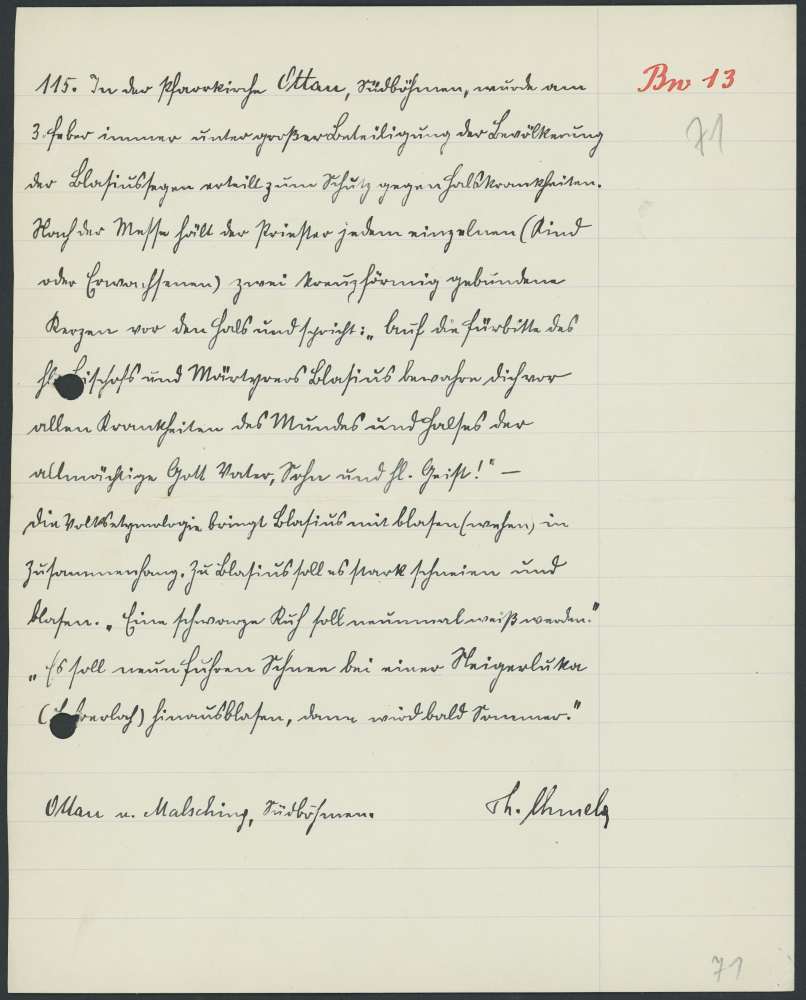 115. In der Pfarrkirche Ottau, Südböhmen, wurde am
Bw 13
3. Feber immer unter großer Beteiligung der Bevölkerung
71
der Blasiussegen erteilt zum Schutz gegen Halskrankheiten.
Nach der Messe hält der Priester jedem einzelnen (Kind
oder Erwachsenen) zwei kreuzförmig gebundene
Kerzen vor den Hals und spricht: „Auf die Fürbitte des
hl. Bischofs und Märtyrers Blasius bewahre dich vor
allen Krankheiten des Mundes und Halses der
allmächtige Gott Vater, Sohn und hl. Geist!" —
Die Volksetymologie bringt Blasius mit blasen (wehen) in
Zusammenhang. Zu Blasius soll es stark schneien und
blasen. „Eine schwarze Kuh soll neunmal weiß werden."
„Es soll neun Fuhren Schnee bei einer Steigerluka
hinausblasen, dann wird bald Sommer."
Ottau u. Malsching, Südböhmen.
Th. Chmela
71